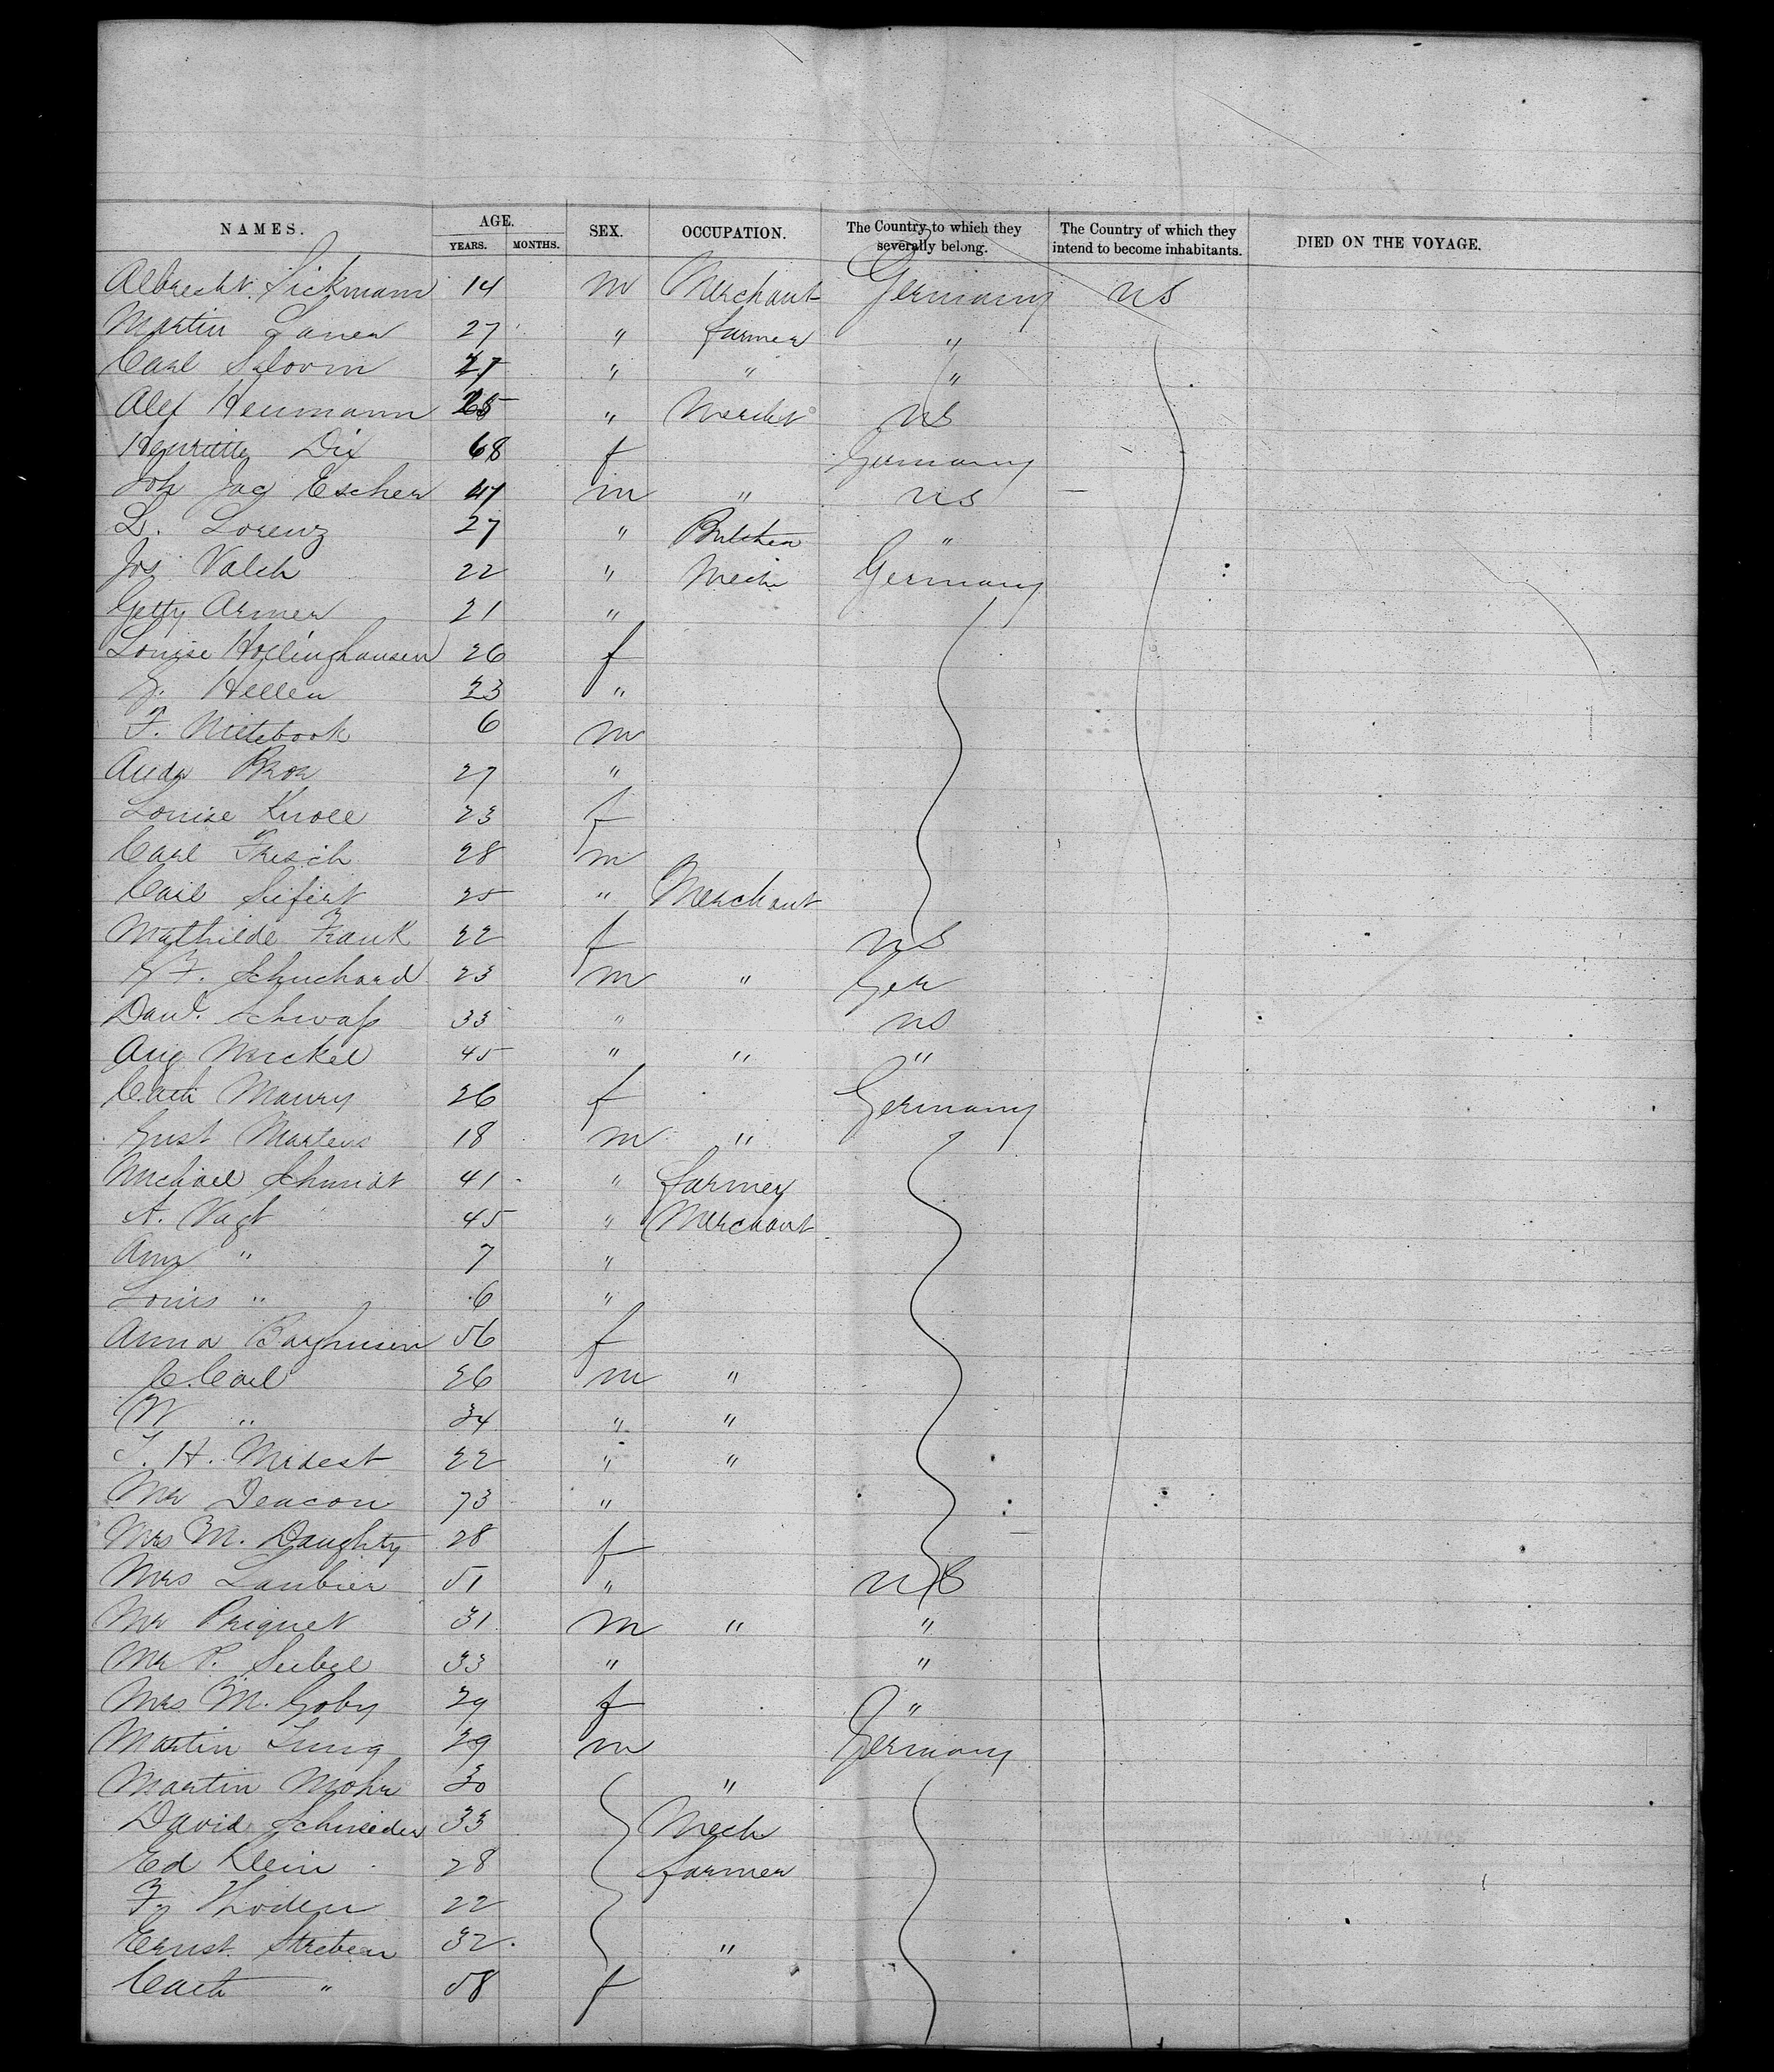 NAMES. AGE. SEX. OCCUPATION. The Country to which they severally belong. The Country of which they intend to become inhabitants. DIED ON THE VOYAGE.
YEARS. MONTHS.
Albrecht Sickmann 14 m Merchant Germany US
Martin 27 " farmer "
Carl 27 " " "
Alex Heumann " Mercht US
Henriette Dix 68 f Germany
Joh Jac Escher 47 m " US —
L. Lorenz 27 " Butcher "
Jos Valch 22 " Mech Germany
Getty Armer 21 "
Louise Hollinghausen 26 f
Hellen 23 "
F. 6 m
27 "
Louise Knoll 23 f
Carl Fresch 28 m
Carl Seifert 25 " Merchant
Mathilde Frank 22 f US
F. Schuchard 23 m " Ger
Danl. Schwass 33 " US
Aug Merckel 45 " " "
Cath Maury 26 f Germany
Gust Martens 18 m "
Michael Schmidt 41 " farmer
A. Vagt 45 " Merchant
" 7 "
Louis " 6 "
Anna Barghusen 56 f
C. Carl 26 m "
W " 34 " "
H. Modest 22 " "
Mr Deacon 73 "
Mrs M. Daughty 28 f
Mrs Laubier 51 " US
Mr Priquet 31 m " "
Mr P. Seibel 33 " "
Mrs M. Goby 29 f "
Martin 29 m Germany
Martin Mohr 30 "
David Schneider 33 Mech
Ed Klein 28 farmer
Thoden 22
Ernst Streben 32 "
Cath " 58 f